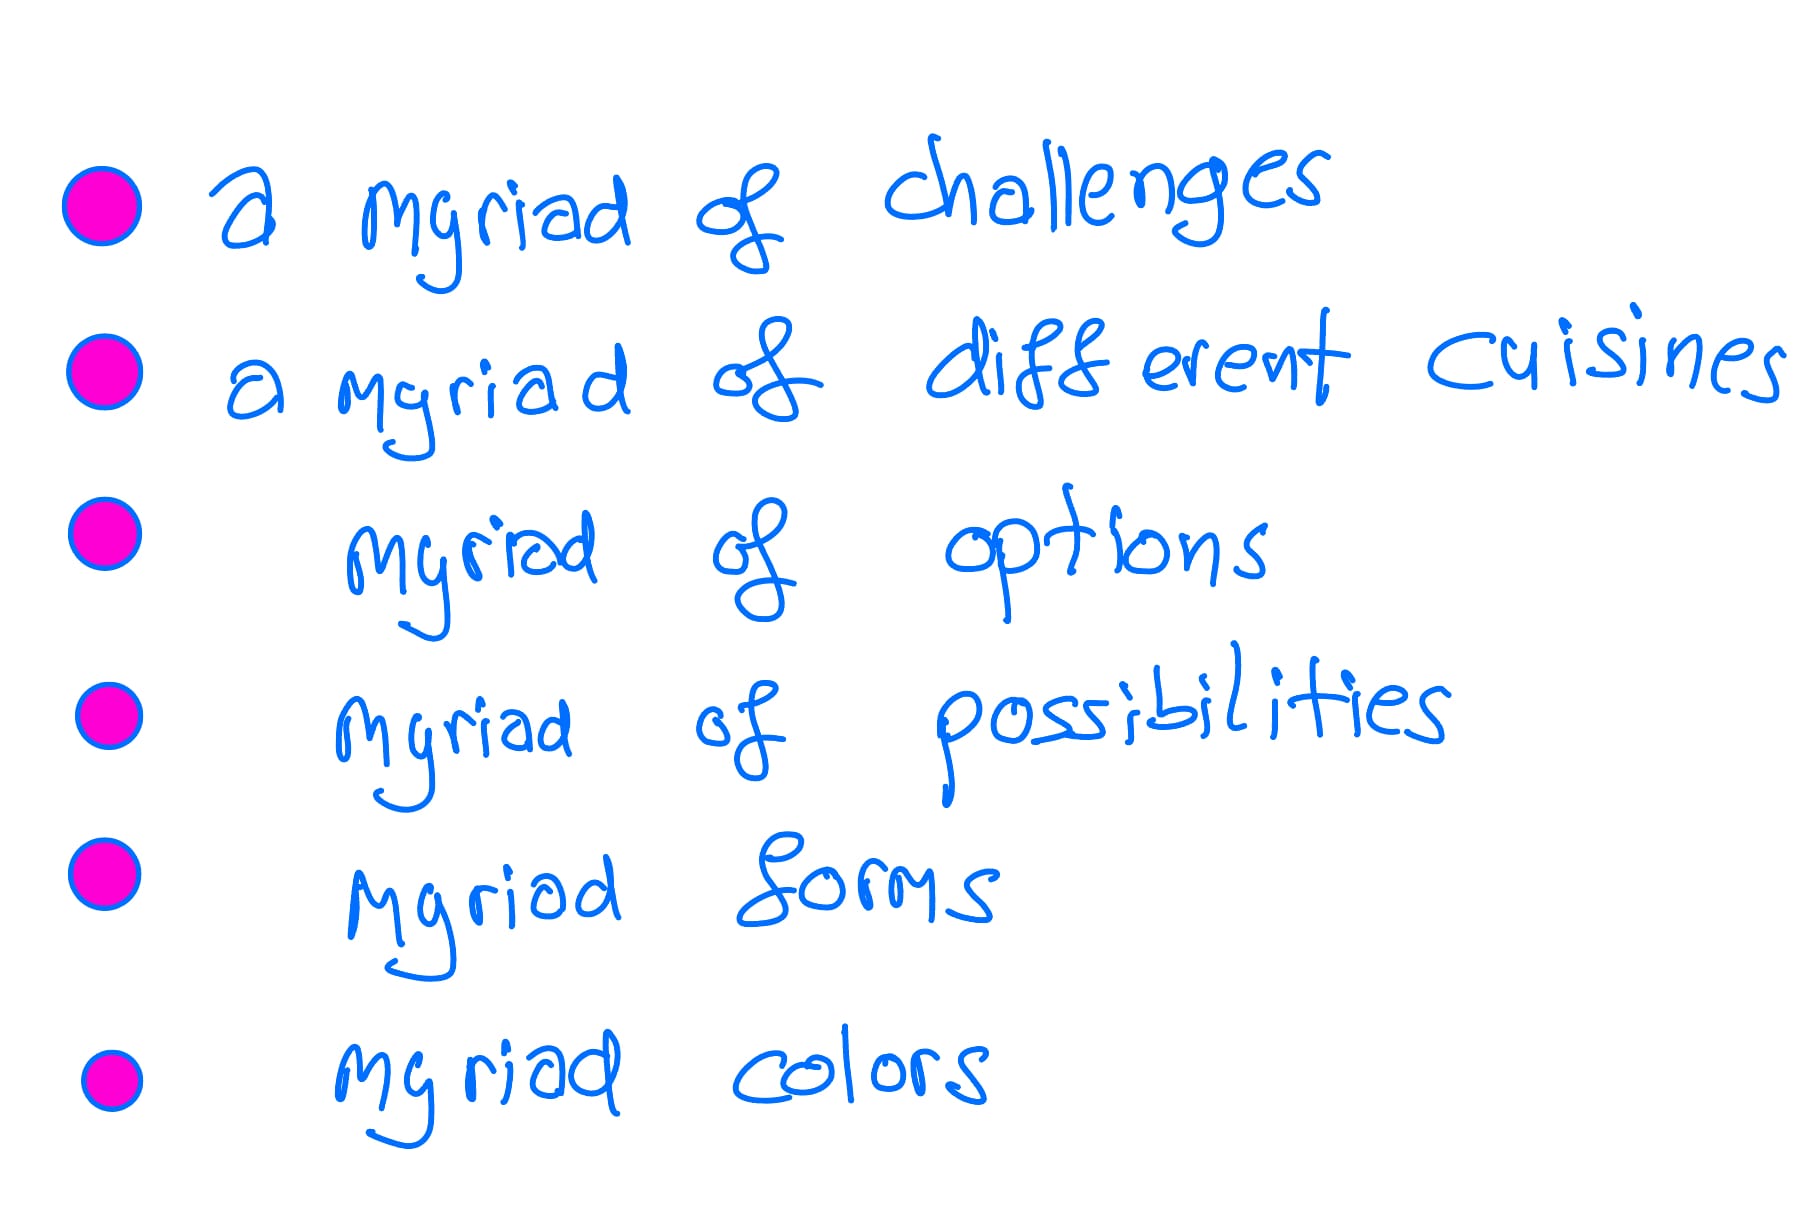 a myriad of challenges
a myriad of different cuisines
myriad of options
myriad of possibilities
myriad forms
myriad colors